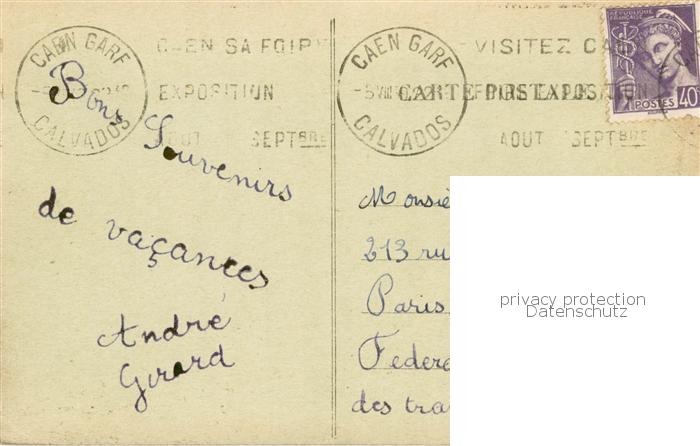 CAEN GARE
CALVADOS
CAEN SA FOIRE
EXPOSITION
AOUT SEPTBRE
CAEN GARE
CALVADOS
VISITEZ CA
EXPOSITION
AOUT SEPTBRE
CARTE POSTALE
RÉPUBLIQUE
FRANÇAISE
POSTES 40
Bons Souvenirs
de vaçances
André
Girard
Monsie
213 ru
Paris
Federe
des tra
privacy protection
Datenschutz